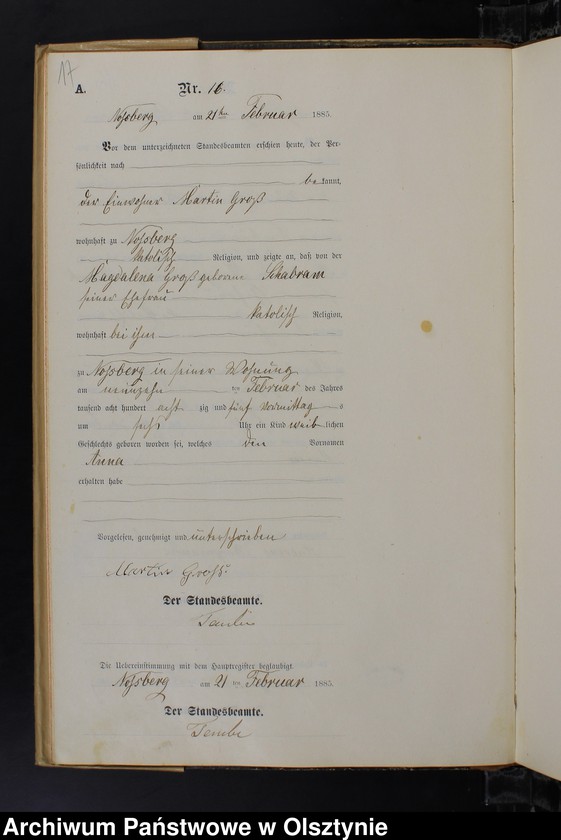 17
A. Nr. 16.
Nossberg am 21ten Februar 1885.
Vor dem unterzeichneten Standesbeamten erschien heute, der Per-
sönlichkeit nach
be kannt,
der Einwohner Martin Groß
wohnhaft zu Nossberg
katolisch Religion, und zeigte an, daß von der
Magdalena Groß geborene Skabram
seiner Ehefrau
katolisch Religion,
wohnhaft bei ihm
zu Nossberg in seiner Wohnung
am neunzehn ten Februar des Jahres
tausend acht hundert acht zig und fünf Vormittag s
um sechs Uhr ein Kind weib lichen
Geschlechts geboren worden sei, welches den Vornamen
Anna
erhalten habe
Vorgelesen, genehmigt und unterschrieben
Martin Groß.
Der Standesbeamte.
Die Uebereinstimmung mit dem Hauptregister beglaubigt
Nossberg am 21 ten Februar 1885.
Der Standesbeamte.
Archiwum Państwowe w Olsztynie